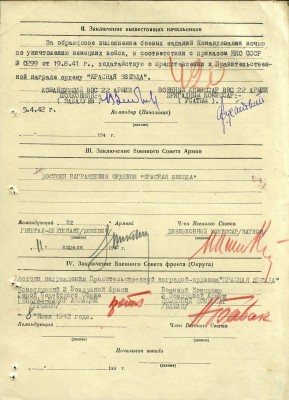 II. Заключение вышестоящих начальников
За образцовое выполнение боевых заданий Командования ночью
по уничтожению немецких войск, в соответствии с приказом НКО СССР
№ 0299 от 19.8.41 г., ходатайствую о представлении к Правительствен-
ной награде ордену "КРАСНАЯ ЗВЕЗДА".
КОМАНДУЮЩИЙ ВВС 22 АРМИИ
ВОЕННЫЙ КОМИССАР ВВС 22 АРМИИ
ПОЛКОВНИК-
БРИГАДНЫЙ КОМИССАР-
5.4.42 г.
Командир (Начальник)
194 г.
III. Заключение Военного Совета Армии
ДОСТОИН НАГРАЖДЕНИЯ ОРДЕНОМ "КРАСНАЯ ЗВЕЗДА"
Командующий 22 Армией
Член Военного Совета
ГЕНЕРАЛ-
ДИВИЗИОННЫЙ КОМИССАР
11 апреля
IV. Заключение Военного Совета фронта (Округа)
Достоин награждения Правительственной наградой-орденом "КРАСНАЯ ЗВЕЗДА"
Командующий 3 Воздушной Армии
Военный Комиссар
Герой Советского Союза
3 Воздушной Армии
8 Июня 1942 года.
Командующий
Член Военного Совета
Начальник штаба
194 г.